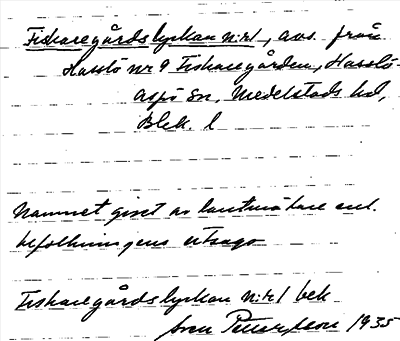 Fiskaregårdslyckan N:r 1, avs. från
Hasslö nr 9 Fiskaregården, Hasslö-
Aspö sn, Medelstads hd,
Blek. l
Namnet givet av lantmätare enl.
befolkningens utsago
Fiskaregårdslyckan N:r 1 bek
Sven Petersson 1935